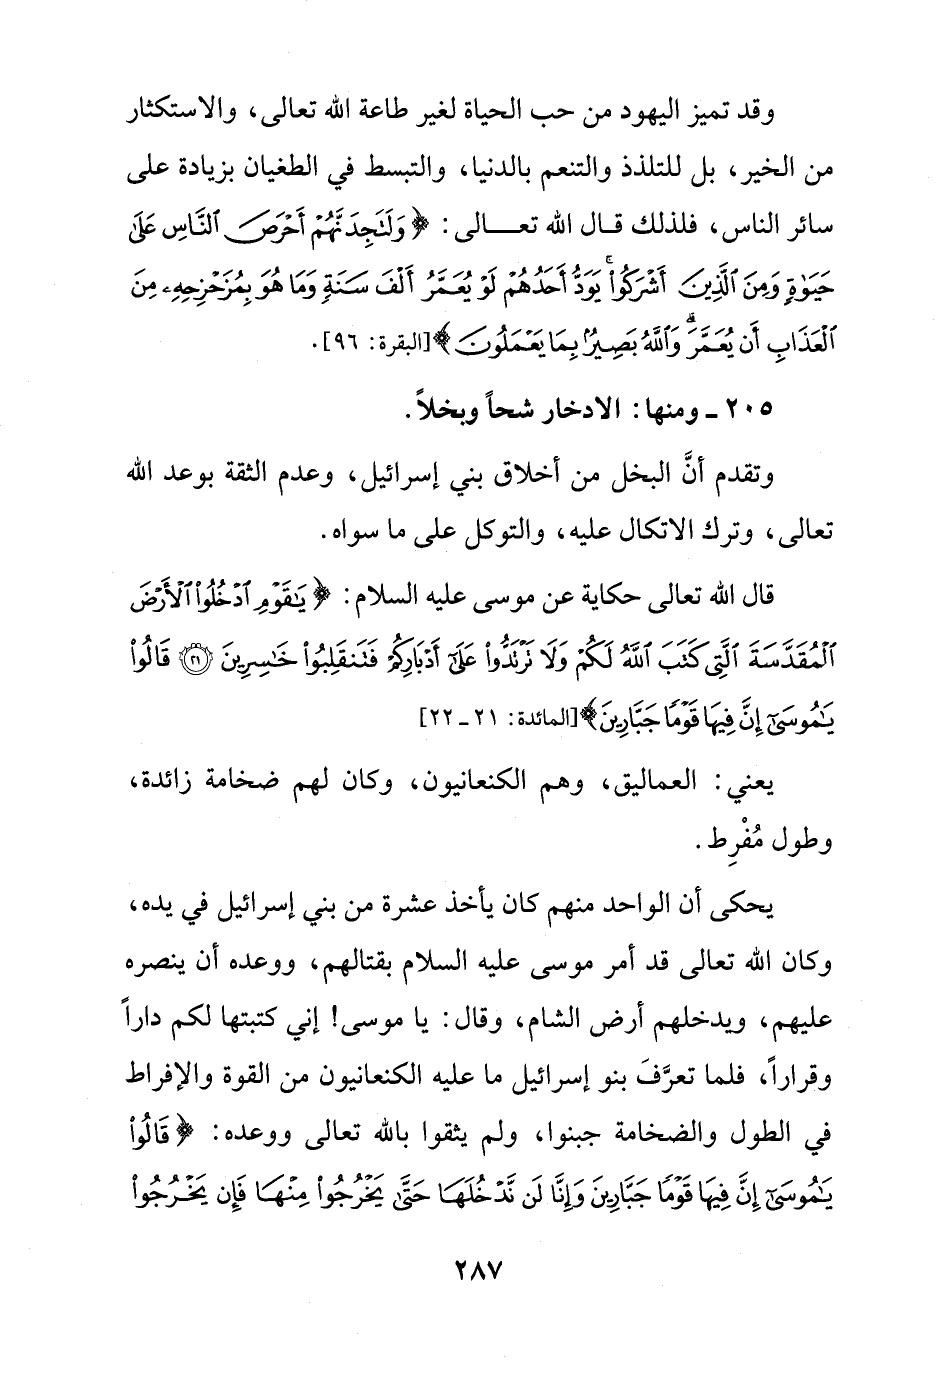 وقد تميز اليهود من حب الحياة لغير طاعة الله تعالى، والاستكثار
من الخير، بل للتلذذ والتنعم بالدنيا، والتبسط في الطغيان بزيادة على
سائر الناس، فلذلك قال الله تعالى: ﴿وَلَتَجِدَنَّهُمْ أَحْرَصَ ٱلنَّاسِ عَلَىٰ
حَيَوٰةٍ وَمِنَ ٱلَّذِينَ أَشْرَكُوا۟ ۚ يَوَدُّ أَحَدُهُمْ لَوْ يُعَمَّرُ أَلْفَ سَنَةٍ وَمَا هُوَ بِمُزَحْزِحِهِۦ مِنَ
ٱلْعَذَابِ أَن يُعَمَّرَ ۗ وَٱللَّهُ بَصِيرٌۢ بِمَا يَعْمَلُونَ﴾ [البقرة: ٩٦].
٢٠٥ ـ ومنها: الادخار شحاً وبخلاً.
وتقدم أنَّ البخل من أخلاق بني إسرائيل، وعدم الثقة بوعد الله
تعالى، وترك الاتكال عليه، والتوكل على ما سواه.
قال الله تعالى حكاية عن موسى عليه السلام: ﴿يَٰقَوْمِ ٱدْخُلُوا۟ ٱلْأَرْضَ
ٱلْمُقَدَّسَةَ ٱلَّتِى كَتَبَ ٱللَّهُ لَكُمْ وَلَا تَرْتَدُّوا۟ عَلَىٰٓ أَدْبَارِكُمْ فَتَنقَلِبُوا۟ خَٰسِرِينَ ۝٢١ قَالُوا۟
يَٰمُوسَىٰٓ إِنَّ فِيهَا قَوْمًا جَبَّارِينَ﴾ [المائدة: ٢١ ـ ٢٢]
يعني: العماليق، وهم الكنعانيون، وكان لهم ضخامة زائدة،
وطول مُفْرِط.
يحكى أن الواحد منهم كان يأخذ عشرة من بني إسرائيل في يده،
وكان الله تعالى قد أمر موسى عليه السلام بقتالهم، ووعده أن ينصره
عليهم، ويدخلهم أرض الشام، وقال: يا موسى! إني كتبتها لكم داراً
وقراراً، فلما تعرَّفَ بنو إسرائيل ما عليه الكنعانيون من القوة والإفراط
في الطول والضخامة جبنوا، ولم يثقوا بالله تعالى ووعده: ﴿قَالُوا۟
يَٰمُوسَىٰٓ إِنَّ فِيهَا قَوْمًا جَبَّارِينَ وَإِنَّا لَن نَّدْخُلَهَا حَتَّىٰ يَخْرُجُوا۟ مِنْهَا فَإِن يَخْرُجُوا۟
٢٨٧